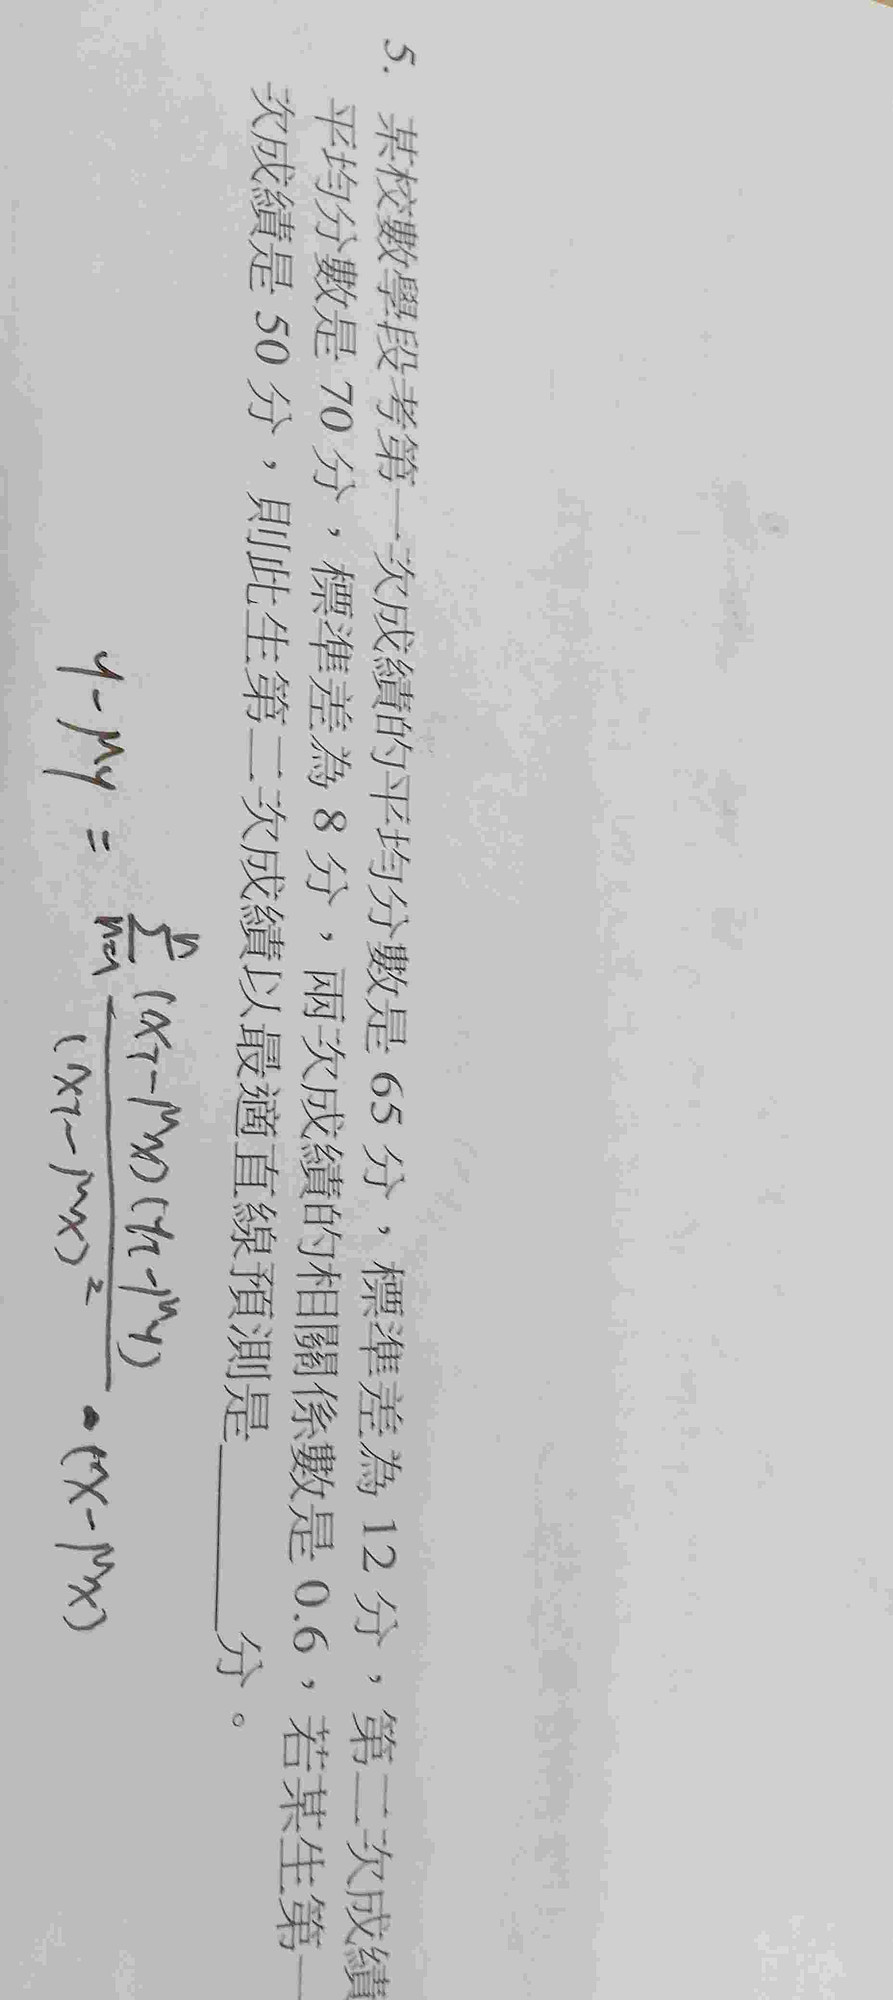 5. 某校數學段考第一次成績的平均分數是 65 分，標準差為 12 分，第二次成績
平均分數是 70 分，標準差為 8 分，兩次成績的相關係數是 0.6，若某生第一
次成績是 50 分，則此生第二次成績以最適直線預測是______分。
y - μy = Σ(n, n=1) (xi - μx)(yi - μy) / (xi - μx)² · (x - μx)